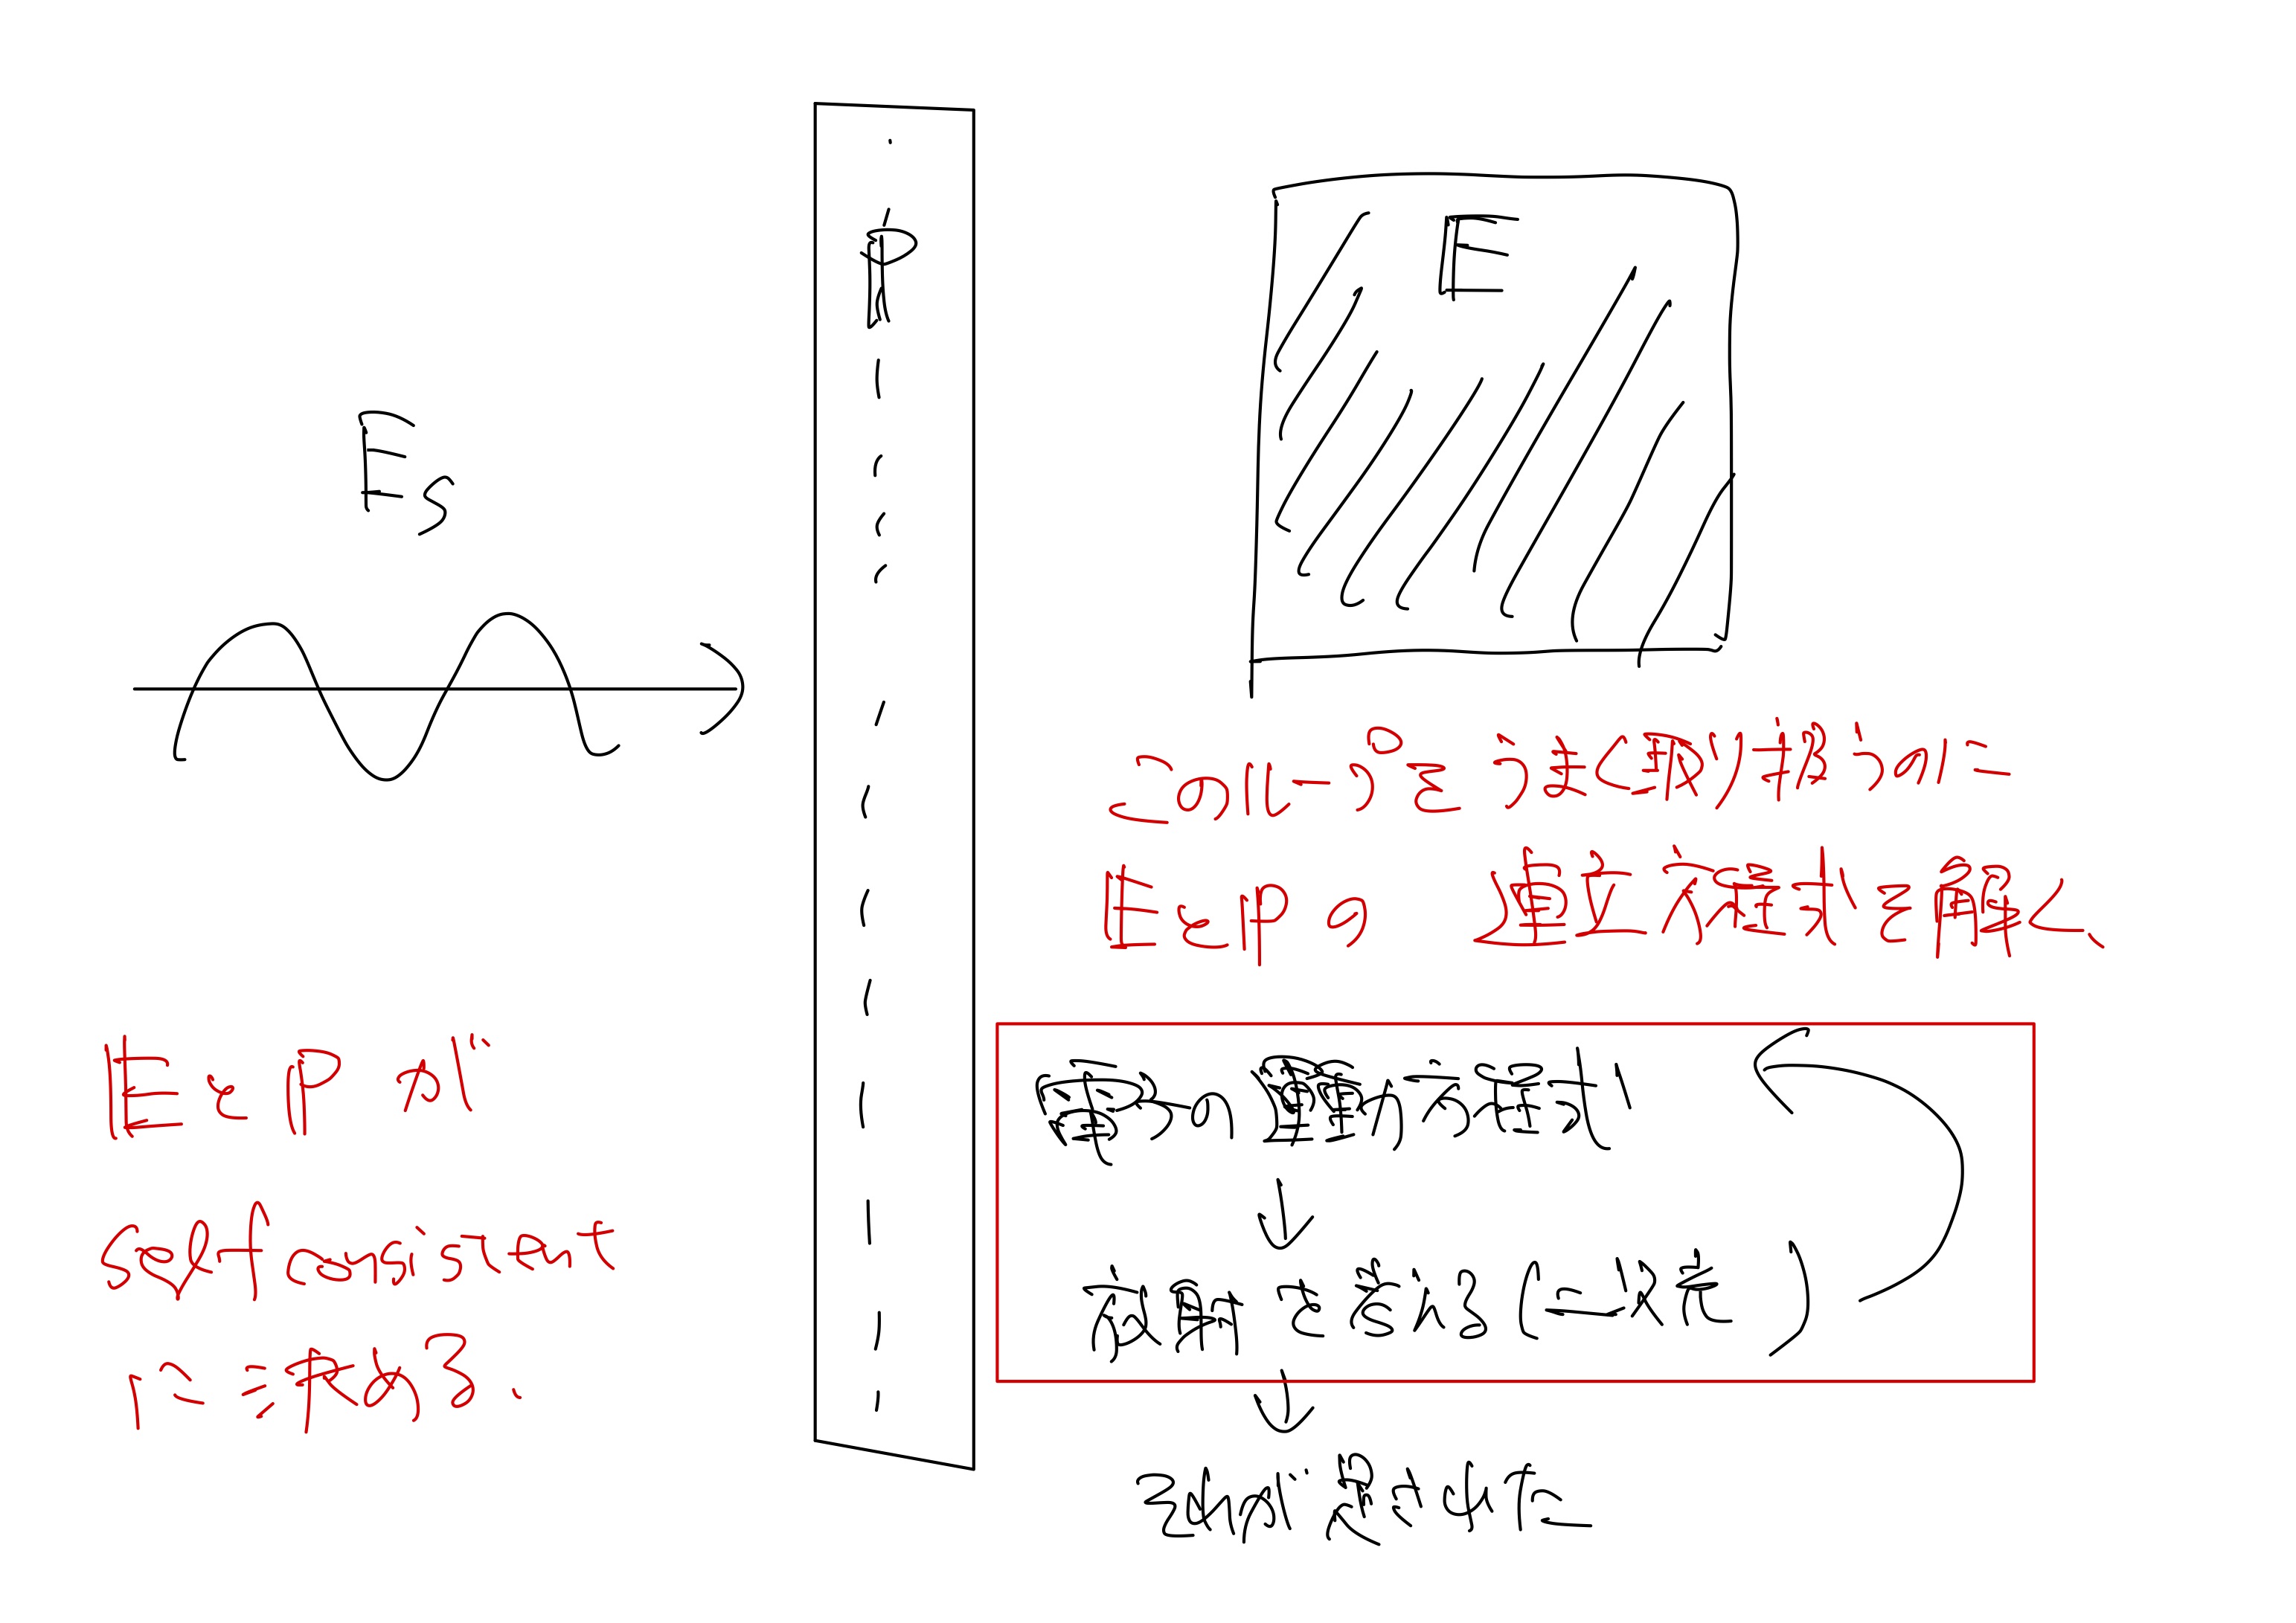 E_S
P
E
このループをうまく取り扱うのに
EとPの 連立方程式を解く、
EとPが
self consistent
に求める.
電子の運動方程式
↓
放射を考える(二次
↓
それが